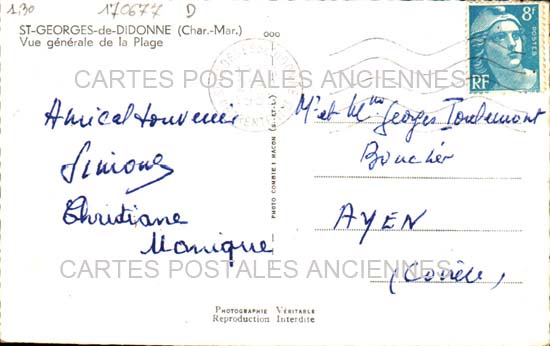 130 170677 D
ST-GEORGES-de-DIDONNE (Char.-Mar.)
Vue générale de la Plage
8F
POSTES
RF
CARTES POSTALES ANCIENNES
Amical souvenir
Simone
Christiane
Monique
PHOTO COMBIER MACON (S.-ET-L.)
Mr et Mme Georges
Boucher
AYEN
(Corrèze)
CARTES POSTALES ANCIENNES
PHOTOGRAPHIE VÉRITABLE
Reproduction Interdite